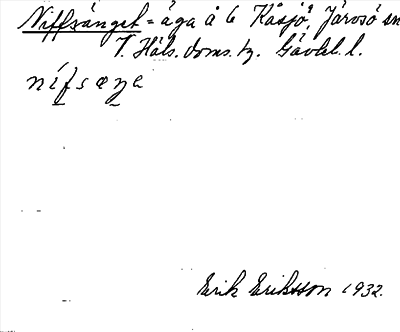 Niffsänget = äga å 6 Kåsjö, Järvsö sn
V. Häls. doms. tg. Gävleb. l.
nífsæŋe
Erik Eriksson 1932.